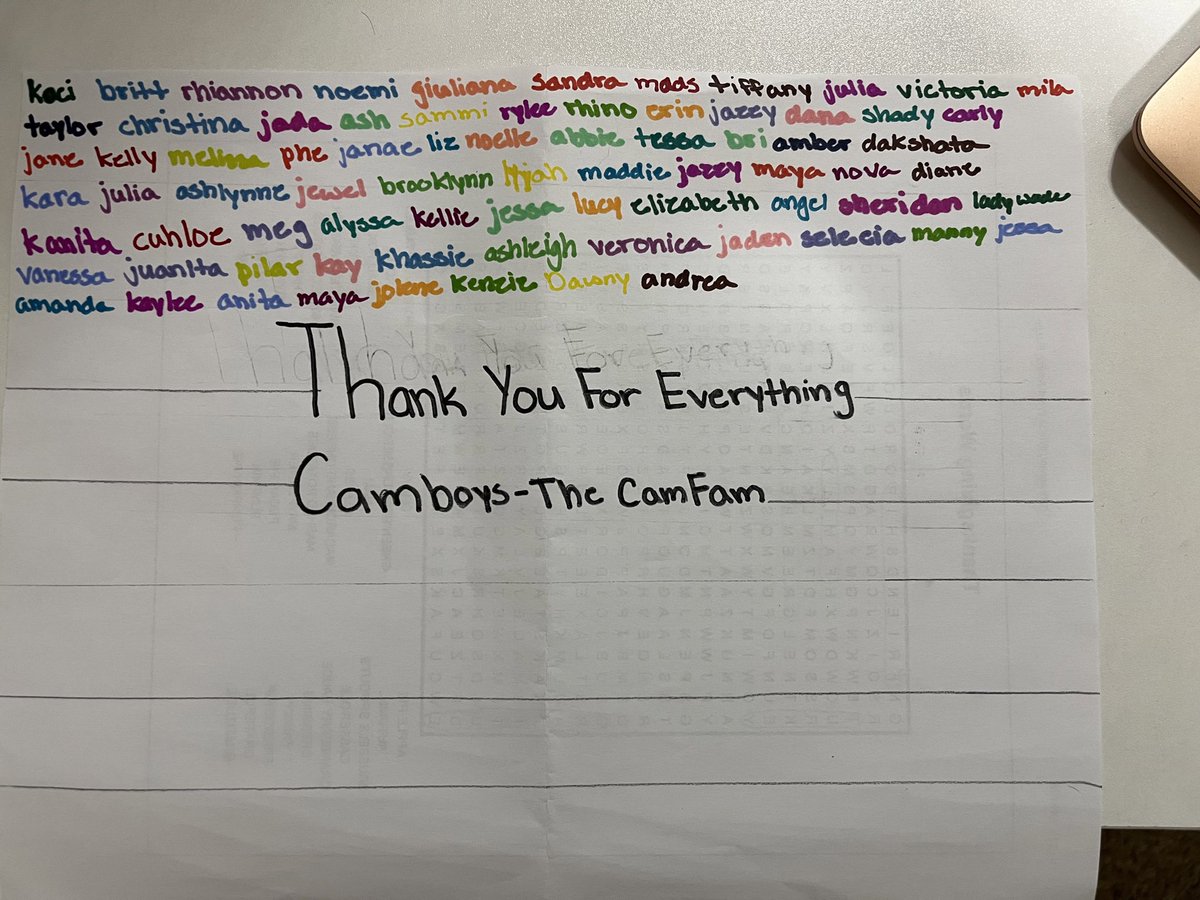 kaci britt rhiannon noemi giuliana sandra mads tiffany julia victoria mila
taylor christina jada ash sammi rylee rhino erin jazzy dana shady carly
jane kelly melissa phe janae liz noelle abbie tessa bri amber dakshata
kara julia ashlynne jewel brooklynn maddie jazzy maya nova diane
kanita cuhloe meg alyssa kellie jessa lucy elizabeth angel sheridan lady wade
vanessa juanita pilar kay khassie ashleigh veronica jaden selecia manny jessa
amanda kaylee anita maya jolene kenzie Dawny andrea
Thank You For Everything
Camboys-The CamFam